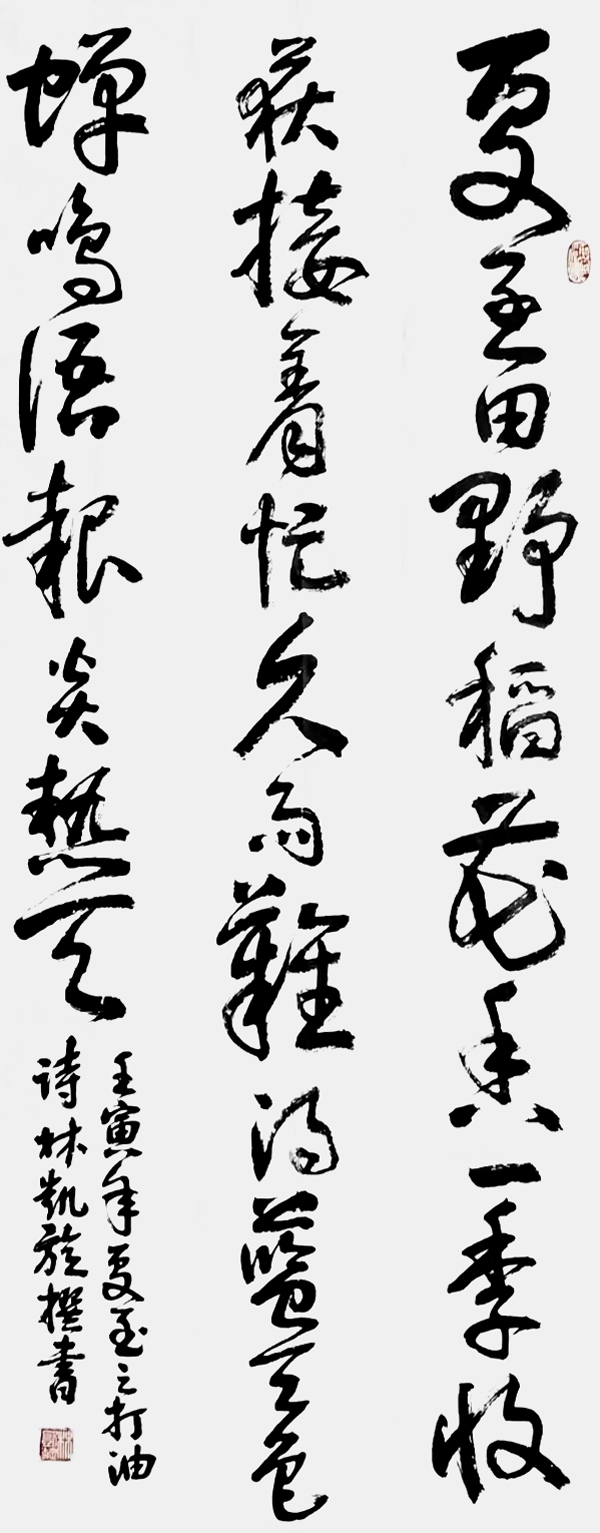 夏至田野稻花香一季收
获接着忙久雨难得蓝天色
蝉鸣语报炎热天
壬寅年夏至之打油
诗林凯旋撰书